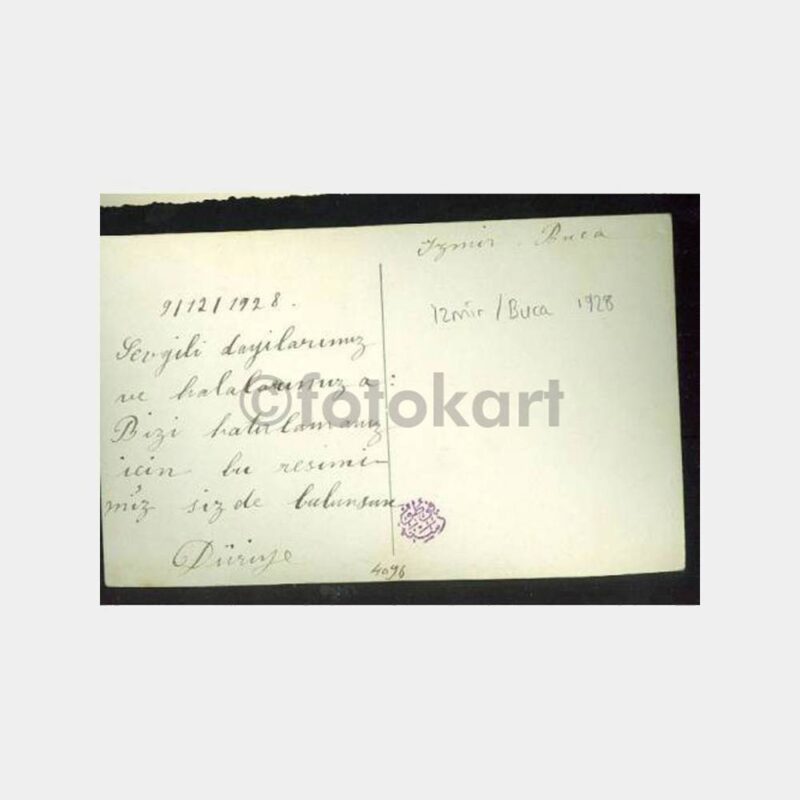 9/12/1928.
Sevgili dayilarımız
ve halalarımıza:
Bizi hatırlamanız
için bu resimi-
miz sizde bulunsun
Düriye
Izmir. Buca
izmir/Buca 1928
4096
©fotokart